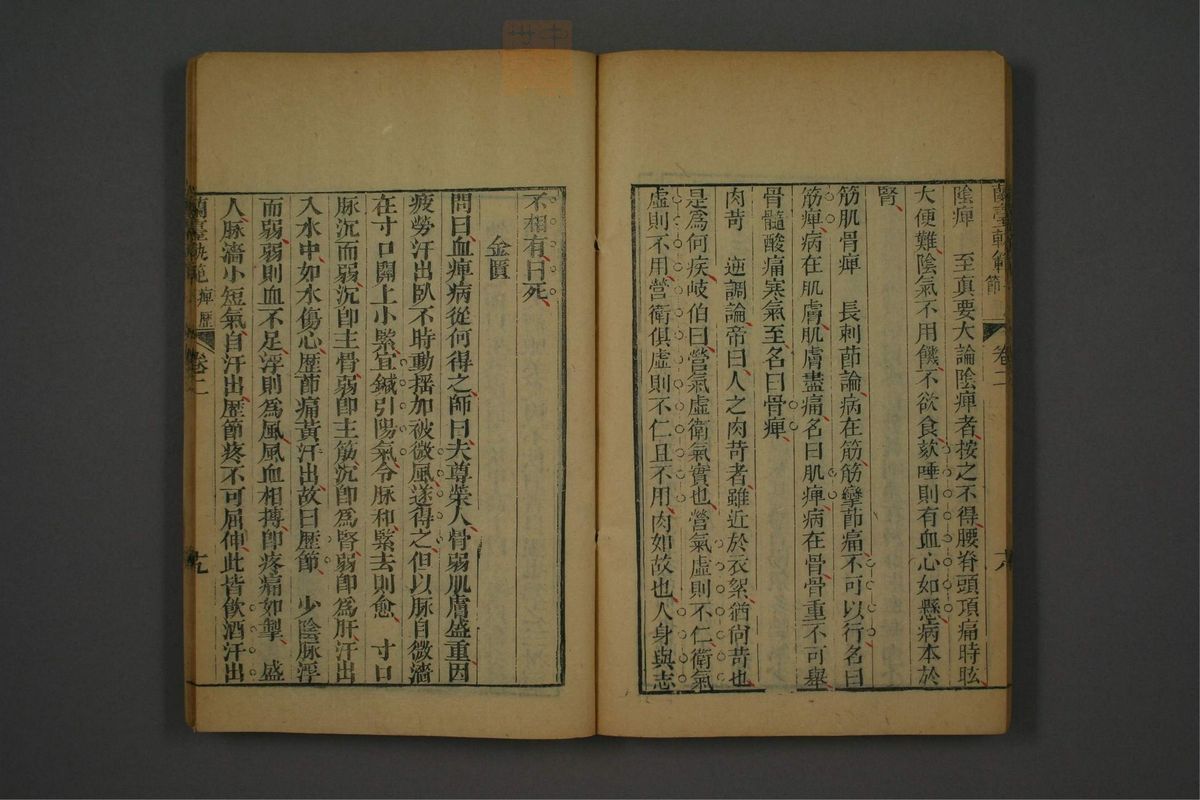 蘭臺軌範 痹 卷二 十八
陰痺 至真要大論陰痺者按之不得腰脊頭項痛時眩
大便難陰氣不用饑不欲食欬唾則有血心如懸病本於
腎
筋肌骨痺 長刺節論病在筋筋攣節痛不可以行名曰
筋痺病在肌膚肌膚盡痛名曰肌痺病在骨骨重不可舉
骨髓酸痛寒氣至名曰骨痺
肉苛 逆調論帝曰人之肉苛者雖近於衣絮猶尙苛也
是爲何疾岐伯曰營氣虛衛氣實也營氣虛則不仁衛氣
虛則不用營衛俱虛則不仁且不用肉如故也人身與志
不相有曰死
金匱
問曰血痺病從何得之師曰夫尊榮人骨弱肌膚盛重因
疲勞汗出臥不時動搖加被微風遂得之但以脉自微濇
在寸口關上小緊宜鍼引陽氣令脉和緊去則愈 寸口
脉沉而弱沉卽主骨弱卽主筋沉卽爲腎弱卽爲肝汗出
入水中如水傷心歷節痛黃汗出故曰歷節 少陰脉浮
而弱弱則血不足浮則爲風風血相搏卽疼痛如掣 盛
人脉濇小短氣自汗出歷節疼不可屈伸此皆飲酒汗出
蘭臺軌範 痺 歷 卷二 十九